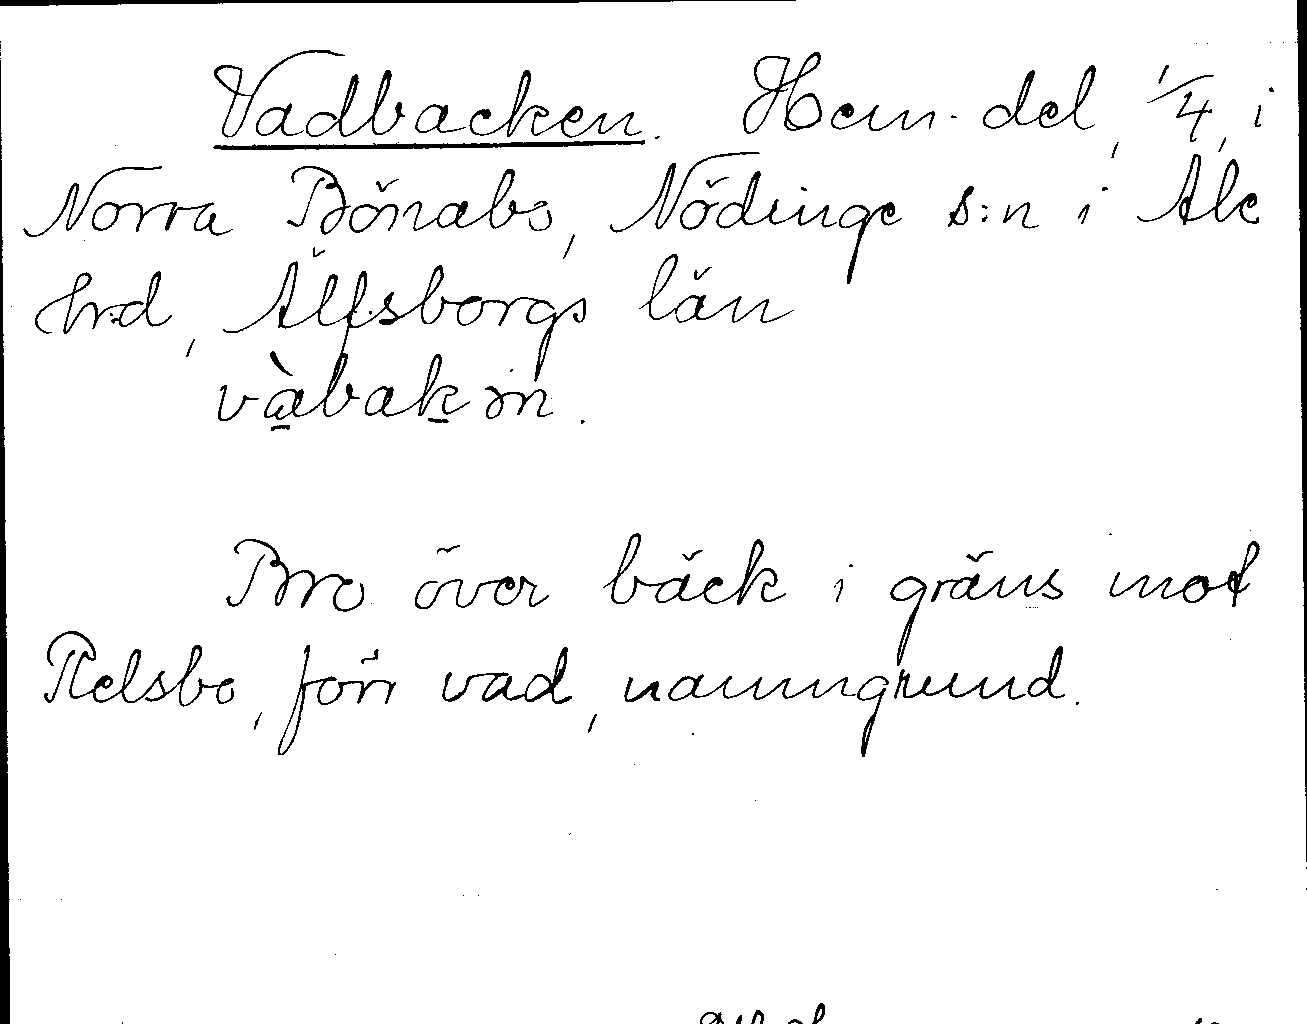 Vadbacken. Hem. del, 1/4, i
Norra Bönabo, Nödinge s:n i Ale
hrd, Älfsborgs län
vàbakən.
Bro över bäck i gräns mot
Relsbo, förr vad, namngrund.